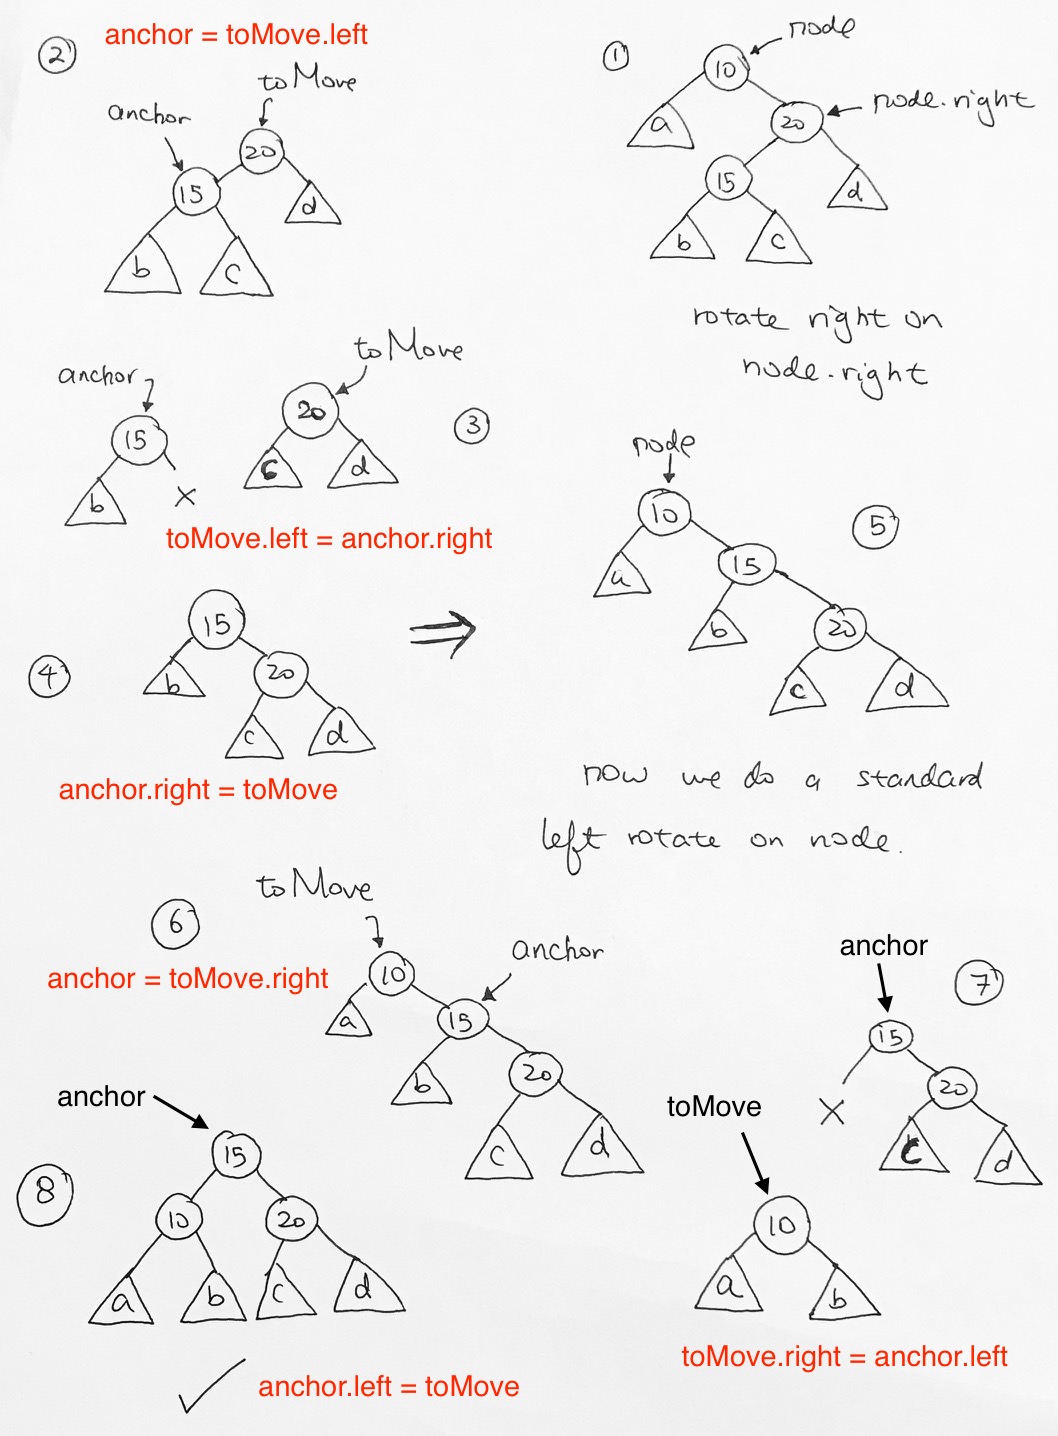 ①
node
10
node.right
a
20
15
d
b
c
rotate right on
node.right
②
anchor = toMove.left
toMove
anchor
20
15
d
b
c
③
toMove
anchor
20
15
c
d
b
X
toMove.left = anchor.right
④
15
20
b
c
d
anchor.right = toMove
⇒
⑤
node
10
15
a
b
20
c
d
now we do a standard
left rotate on node.
⑥
toMove
anchor = toMove.right
anchor
10
a
15
b
20
c
d
⑦
anchor
15
20
X
c
d
toMove
10
a
b
toMove.right = anchor.left
⑧
anchor
15
10
20
a
b
c
d
anchor.left = toMove